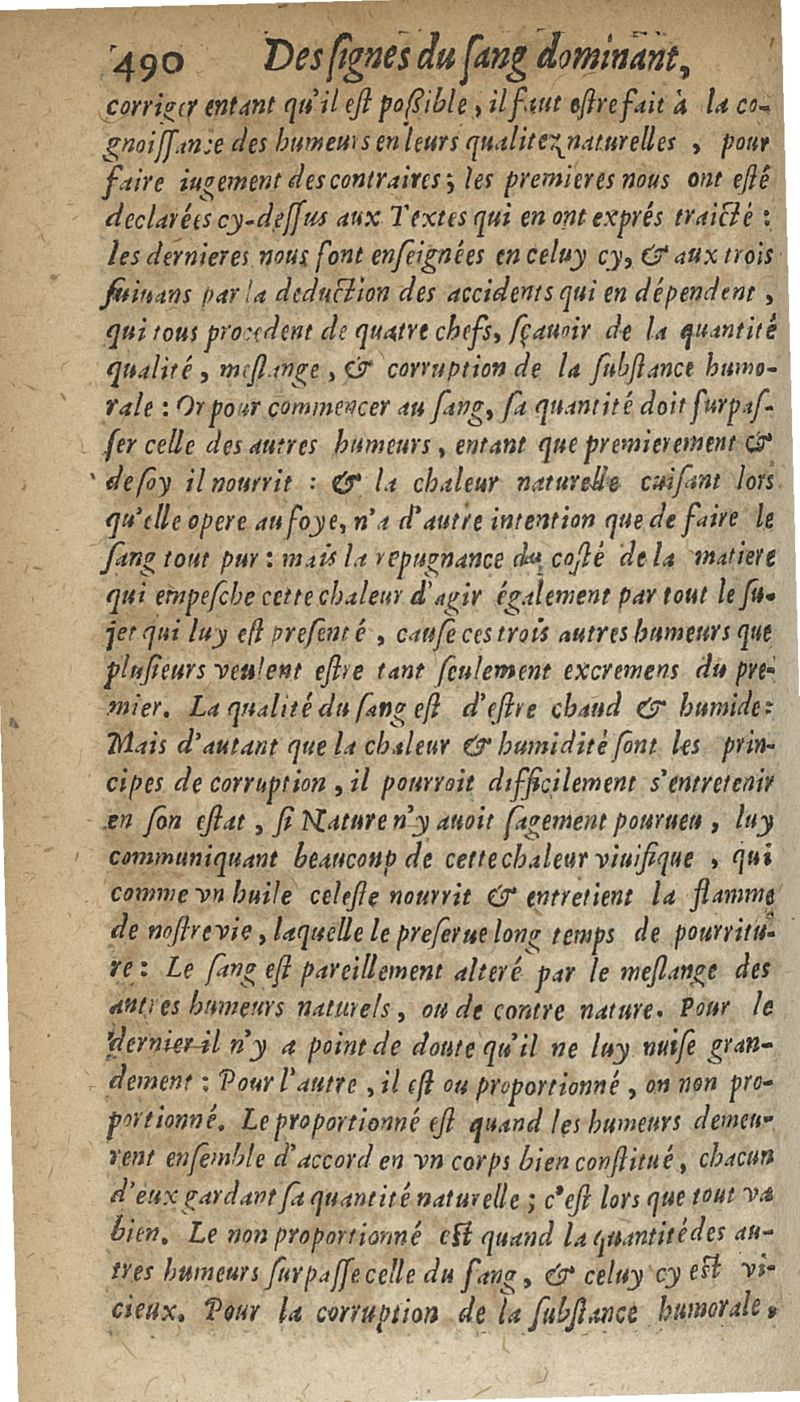 490 Des ſignes du ſang dominant,
corriger entant qu'il eſt poßible, il faut eſtre fait à la co-
gnoiſſance des humeurs en leurs qualitez naturelles, pour
faire iugement des contraires; les premieres nous ont eſté
declarées cy-deſſus aux Textes qui en ont exprés traicté :
les dernieres nous ſont enſeignées en celuy cy, & aux trois
ſuiuans par la deduction des accidents qui en dépendent,
qui tous procedent de quatre chefs, ſçauoir de la quantité
qualité, meſlange, & corruption de la ſubſtance humo-
rale : Or pour commencer au ſang, ſa quantité doit ſurpaſ-
ſer celle des autres humeurs, entant que premierement &
de ſoy il nourrit : & la chaleur naturelle cuiſant lors
qu'elle opere au foye, n'a d'autre intention que de faire le
ſang tout pur : mais la repugnance du coſté de la matiere
qui empeſche cette chaleur d'agir également par tout le ſu-
jet qui luy eſt preſenté, cauſe ces trois autres humeurs que
pluſieurs veulent eſtre tant ſeulement excremens du pre-
mier. La qualité du ſang eſt d'eſtre chaud & humide:
Mais d'autant que la chaleur & humidité ſont les prin-
cipes de corruption, il pourroit difficilement s'entretenir
en ſon eſtat, ſi Nature n'y auoit ſagement pourueu, luy
communiquant beaucoup de cette chaleur viuifique, qui
comme vn huile celeſte nourrit & entretient la flamme
de noſtre vie, laquelle le preſerue long temps de pourritu-
re : Le ſang eſt pareillement alteré par le meſlange des
autres humeurs naturels, ou de contre nature. Pour le
dernier il n'y a point de doute qu'il ne luy nuiſe gran-
dement : Pour l'autre, il eſt ou proportionné, on non pro-
portionné. Le proportionné eſt quand les humeurs demeu-
rent enſemble d'accord en vn corps bien conſtitué, chacun
d'eux gardant ſa quantité naturelle ; c'eſt lors que tout va
bien. Le non proportionné eſt quand la quantité des au-
tres humeurs ſurpaſſe celle du ſang, & celuy cy eſt vi-
cieux. Pour la corruption de la ſubſtance humorale,